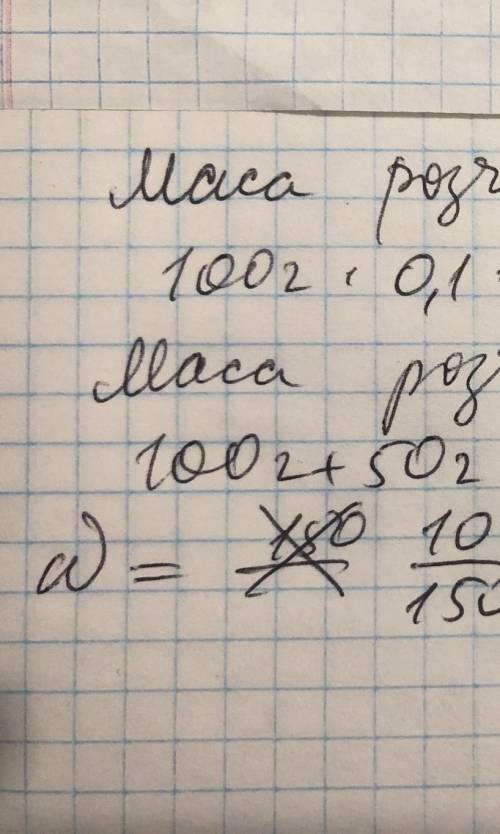 Маса розч
100г · 0,1
Маса роз
100г + 50г
ω = 10/150